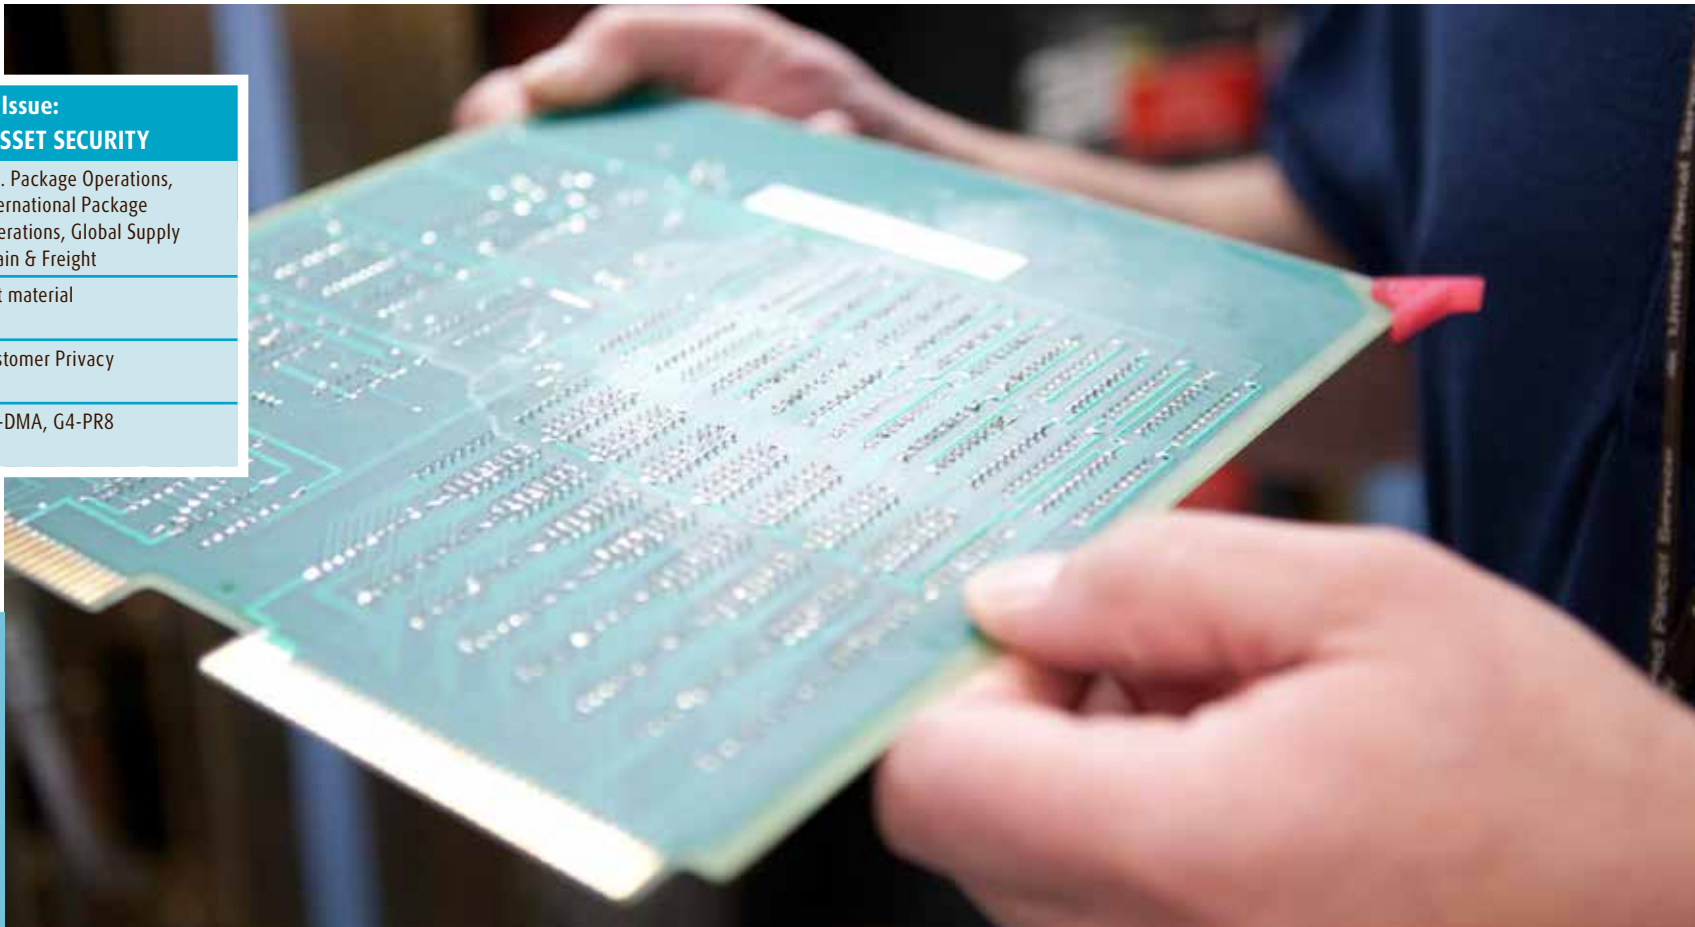 Issue:
SSET SECURITY
. Package Operations,
ernational Package
erations, Global Supply
ain & Freight
t material
stomer Privacy
-DMA, G4-PR8
United Parcel
Parcel Service